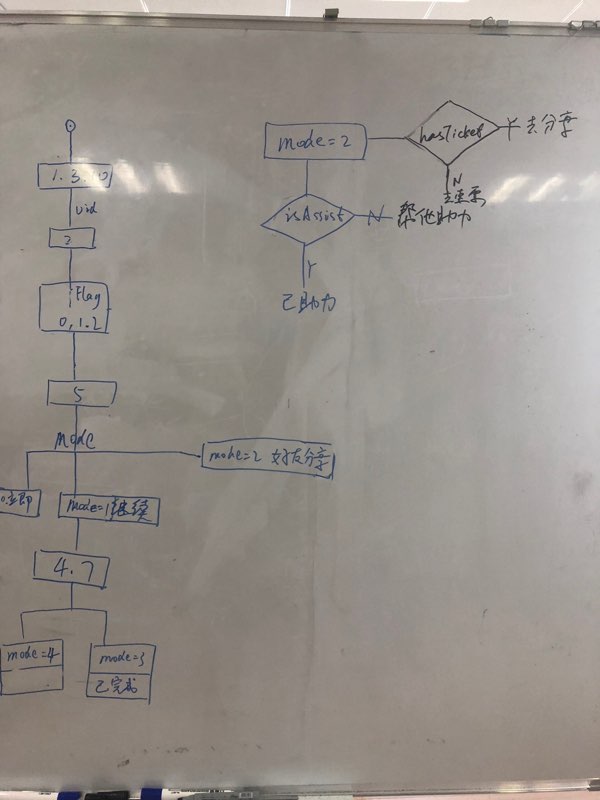 1.3.10
uid
2
Flag
0,1.2
5
Mode
立即
mode=1继续
mode=2 好友分享
4.7
mode=4
mode=3
已完成
mode=2
hasTicket
Y 去分享
N
isAssist
N 帮他助力
Y
已助力